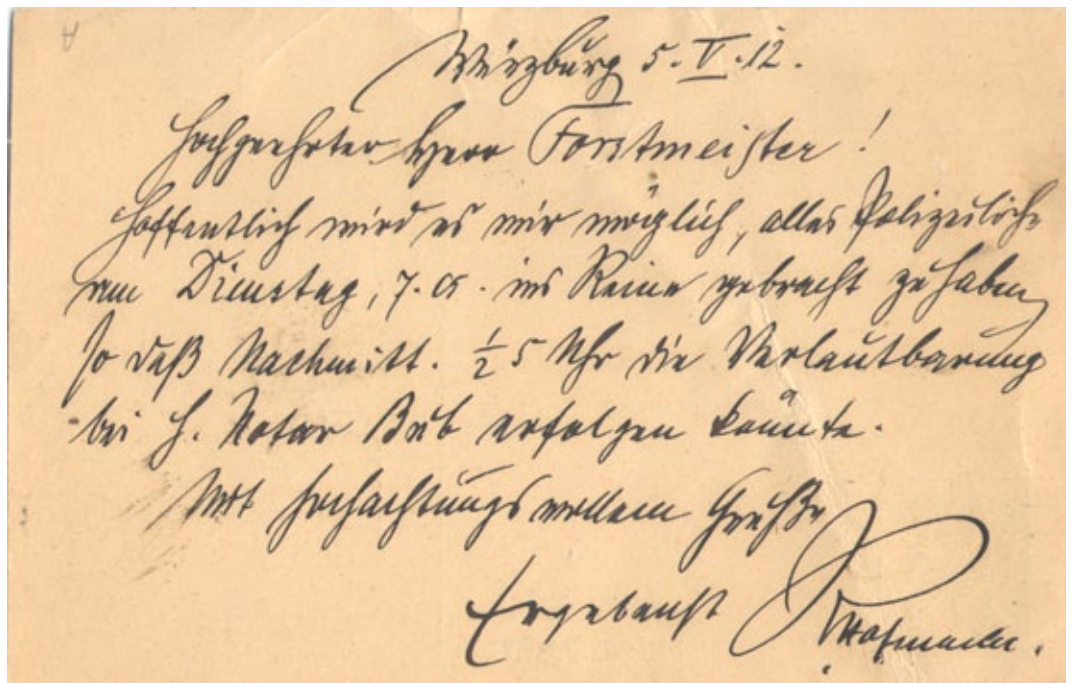 Würzburg 5. V. 12.
Hochgeehrter Herr Forstmeister!
Hoffentlich wird es mir möglich, alles Polizeiliche
am Dienstag, 7. cr. ins Reine gebracht zu haben,
so daß Nachmitt. ½ 5 Uhr die Verlautbarung
bei H. Notar Bub erfolgen könnte.
Mit hochachtungsvollem Gruße
Ergebenst